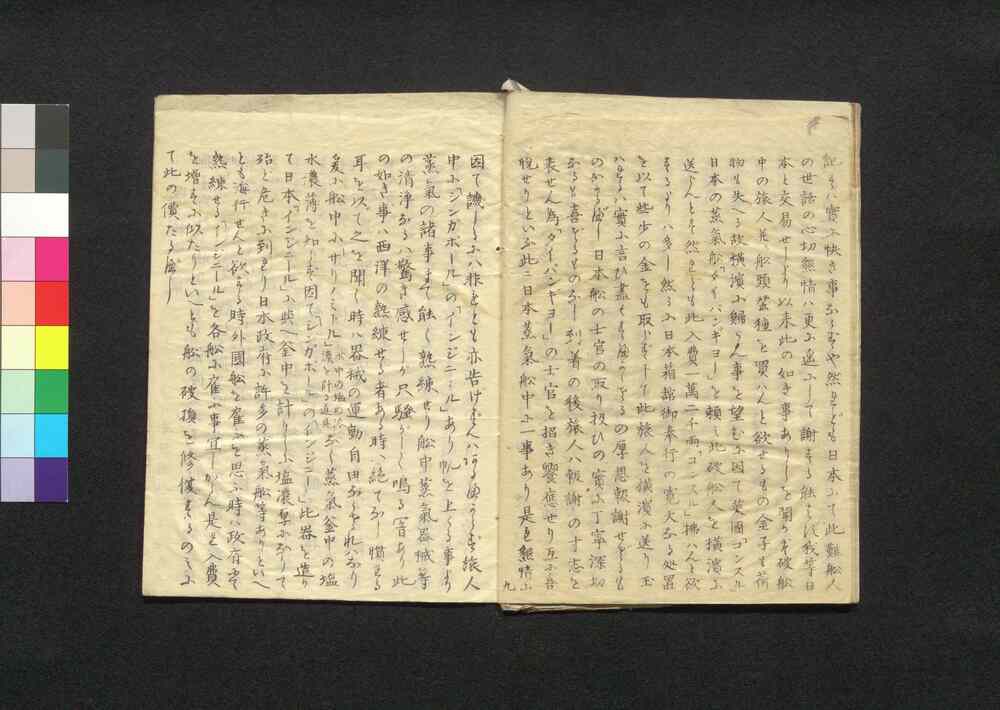 記するハ實に快き事ならずや然れども日本にて此難船人
の世話の心切懇情ハ更に遥にして謝する能ハず我等日
本と交易せしより以来此の如き事ありしを聞かず破船
中の旅人并船頭茶種を買ハんと欲せるもの金子も荷
物も失へる故横濱に歸らん事を望むに因て英國「コンスル」
日本の蒸氣船「ダイバンギヨー」を頼ミ此破船人を横濱に
送らんとす然れども此入費一萬二千両「コンスル」拂ハんと欲
するより 然るに日本箱館御奉行の寛大なる処置
を以て些少の金をも取らずして此旅人を横濱に送り玉
ハる 實に言ひ盡くすべからざるの厚恩報謝せざるも
のなかるべし日本船の士官の取り扱ひの實に丁寧深切
なるも喜ざるものなし到着の後旅人ハ報謝の寸志を
表せん為「ダイバンギヨー」の士官を招き饗應せり互に吾
悦せりといふ此ニ日本蒸氣船中に一事あり是も懇情に
九
因て譏しるハ非とも亦告げずんハあるべからず旅人
中に「シンガポール」の「インジニール」あり帆を上る事より
蒸氣の諸事まで能く熟練せり船中蒸氣器械等
の清浄なるハ驚き感ぜしが只騒がしく鳴る音あり此
の如き事ハ西洋の熟練せる者ある時ハ絶てなし慣るる
耳を以て之を聞く時ハ器械の運動自由ならざれバなり
爰に船中に「サリノミトル」水中の塩の濃淡を計る道具なし蒸氣釜中の塩
水濃薄を知らず因て「シンガポール」の「インジニー」此器を造り
て日本「インジニール」に與へ釜中を計りしに塩濃厚になりて
殆と危きに到れり日本政府に許多の蒸氣船等ありといへ
とも海行せんと欲する時外國船を雇ふと思ふ時ハ政府にて
熟練せる「インジニール」を各船に雇ふ事宜しからん是も入費
を増すに似たりといへとも船の破損を修復するのミに
て此の償たるべし